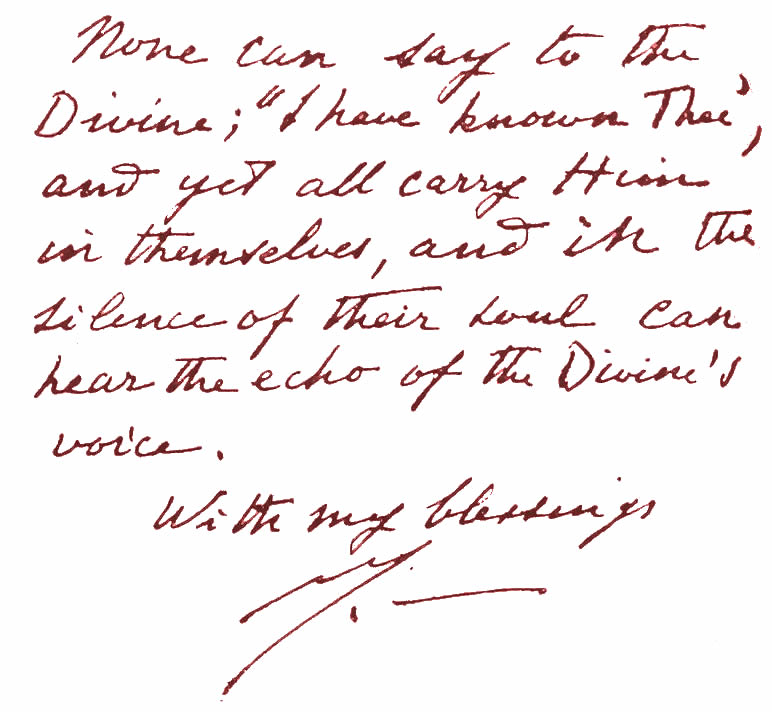 None can say to the
Divine; "I have known Thee",
and yet all carry Him
in themselves, and in the
silence of their soul can
hear the echo of the Divine's
voice.
With my blessings